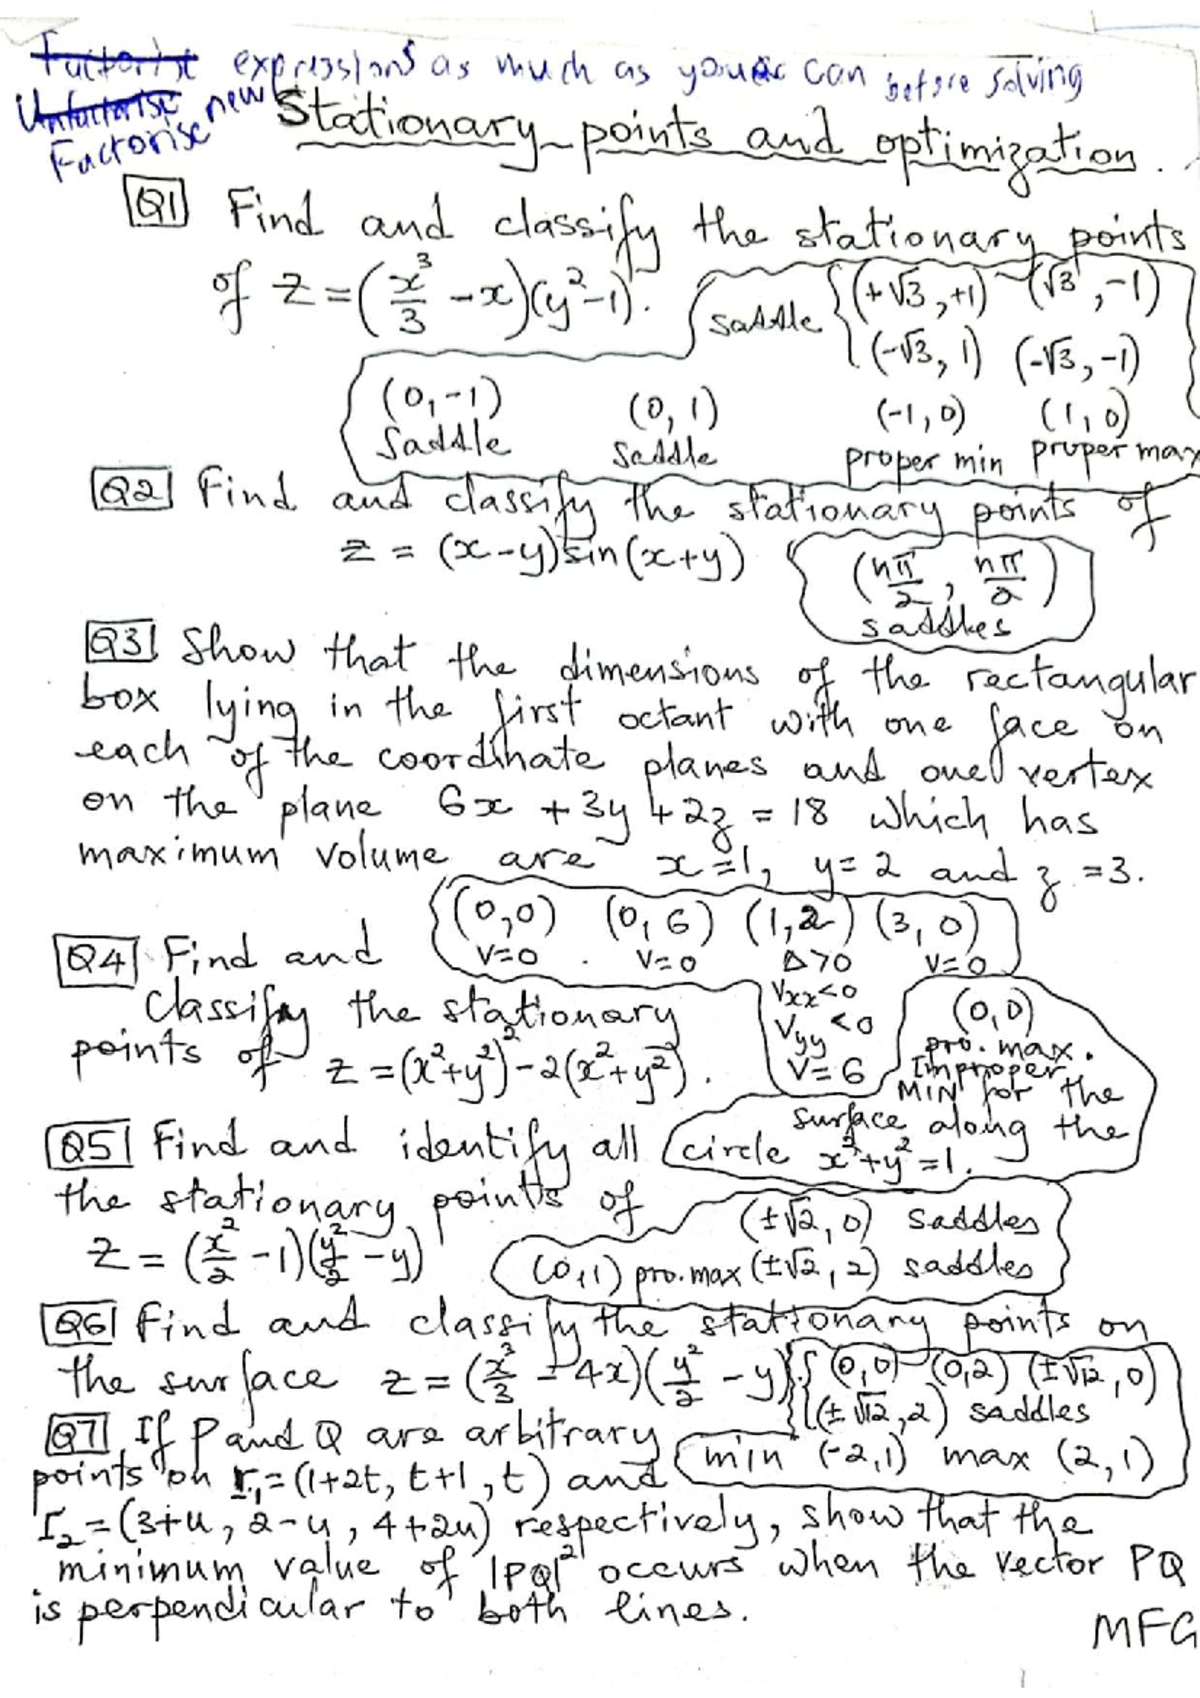 Factorise expressions as much as you can before solving
Unfactorise new
Factorise
Stationary points and optimization.
Q1 Find and classify the stationary points
of z = (x³/3 - x)(y²-1).
saddle { (+√3, +1) (√3, -1)
(-√3, 1) (-√3, -1)
(0, -1) (0, 1) (-1, 0) (1, 0)
saddle saddle proper min proper max
Q2 Find and classify the stationary points of
z = (x-y)sin(x+y) (nπ/2, nπ/2)
saddles
Q3 Show that the dimensions of the rectangular
box lying in the first octant with one face on
each of the coordinate planes and one vertex
on the plane 6x + 3y + 2z = 18 which has
maximum volume are x=1, y=2 and z=3.
(0,0) (0,6) (1,2) (3,0)
V=0 . V=0 Δ>0 V=0
Vxx<0
Vyy<0
V=6
Q4 Find and
classify the stationary
points of z = (x²+y²)² - 2(x²+y²).
(0,0)
pro. max.
Improper
MIN for the
surface along the
circle x²+y²=1.
Q5 Find and identify all
the stationary points of
z = (x²/2 - 1)(y²/2 - y)
(±√2, 0) saddles
(0,1) pro. max (±√2, 2) saddles
Q6 Find and classify the stationary points on
the surface z = (x³/3 - 4x)(y²/2 - y).
{ (0,0) (0,2) (±√12, 0)
(±√12, 2) saddles
min (-2,1) max (2,1)
Q7 If P and Q are arbitrary
points on r₁=(1+2t, t+1, t) and
r₂=(3+u, 2-u, 4+2u) respectively, show that the
minimum value of |PQ|² occurs when the vector PQ
is perpendicular to both lines.
MFG